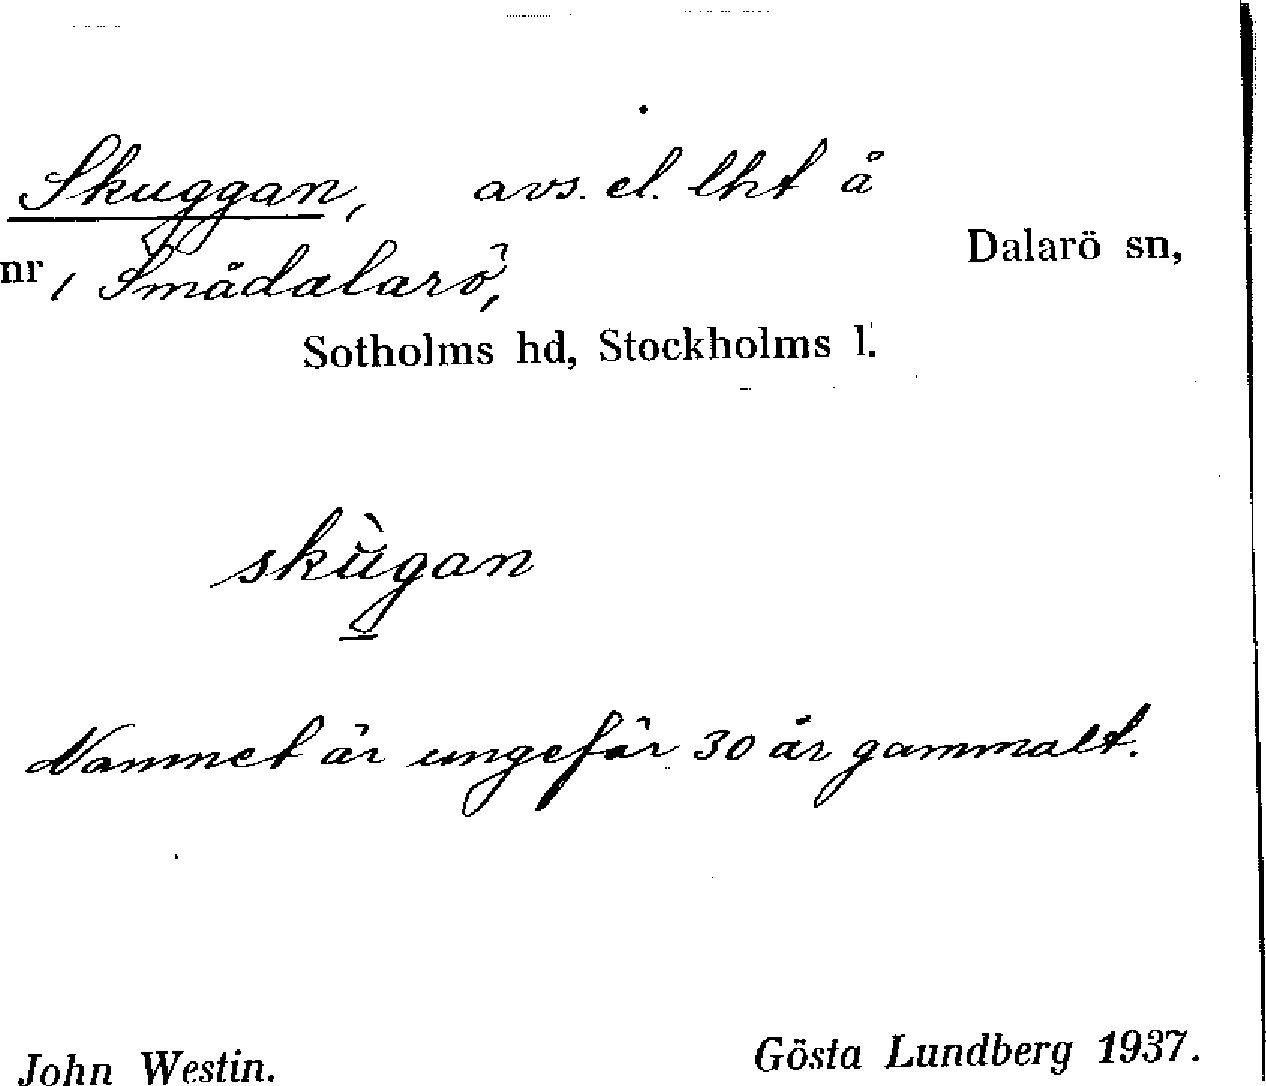 Skuggan, avs. el. lht å
nr 1 Smådalarö, Dalarö sn,
Sotholms hd, Stockholms l.
skùgan
Namnet är ungefär 30 år gammalt.
John Westin. Gösta Lundberg 1937.